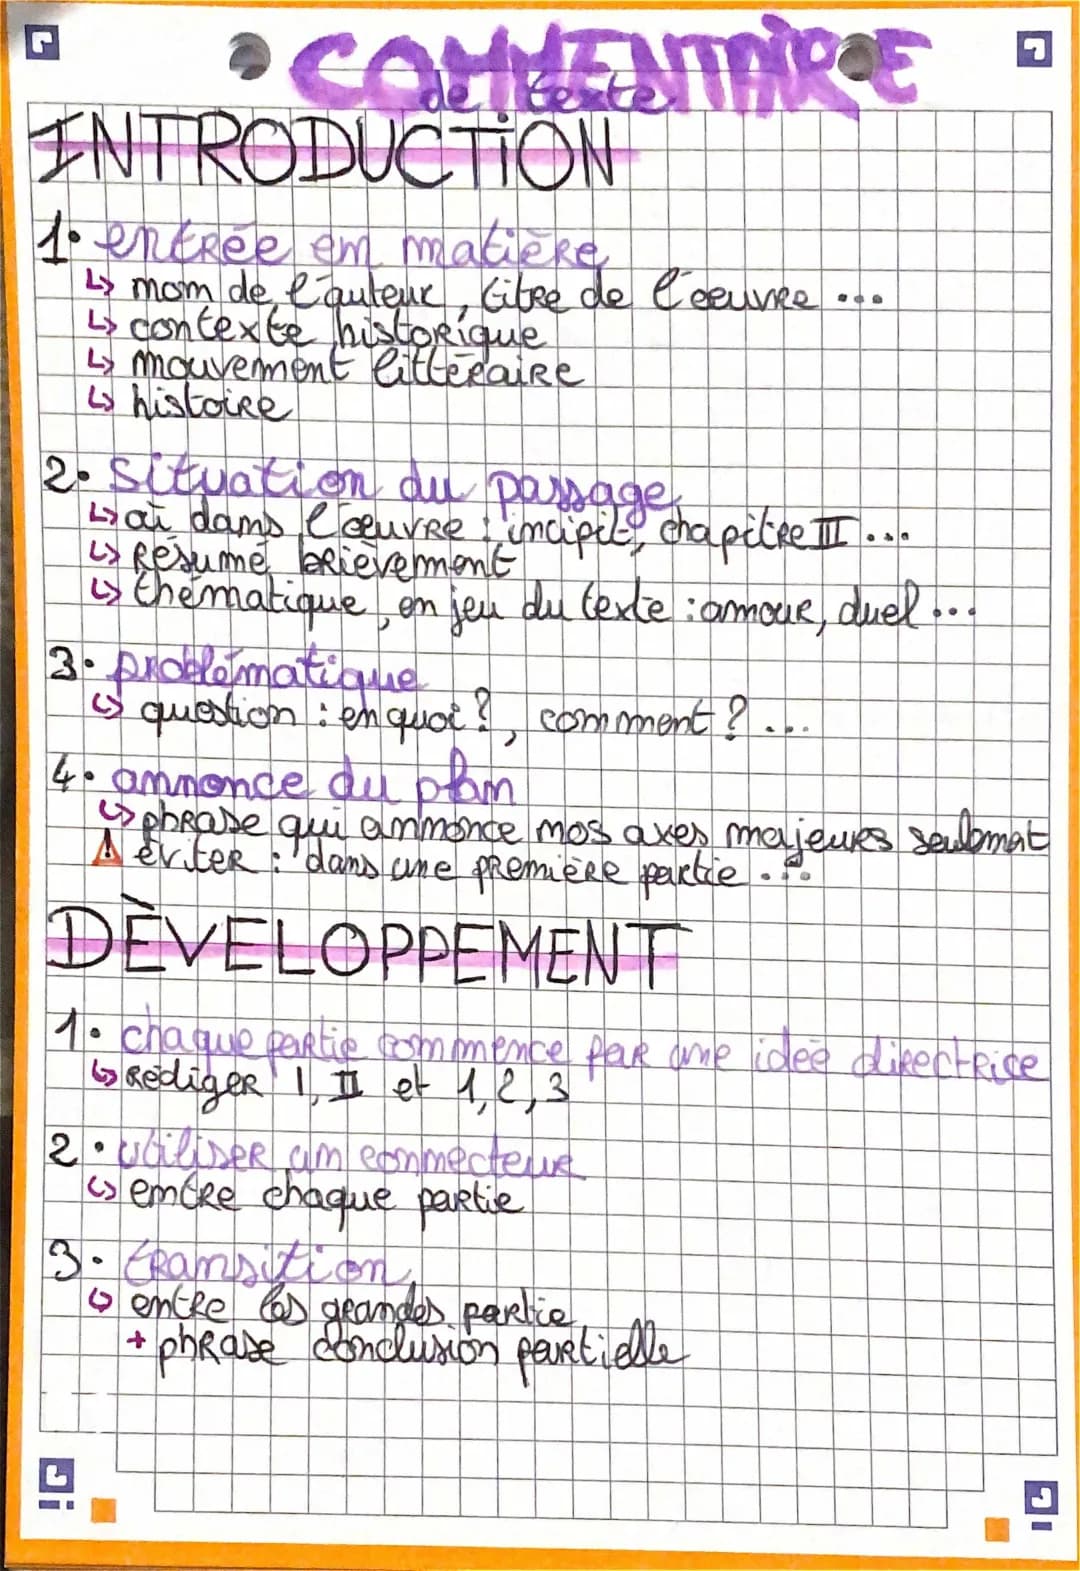 COMMENTAIRE
de texte
INTRODUCTION
1. entrée en matière
↳ nom de l'auteur, titre de l'oeuvre ...
↳ contexte historique
↳ mouvement littéraire
↳ histoire
2. situation du passage
↳ où dans l'oeuvre : incipit, chapitre III ...
↳ résumé brièvement
↳ thématique, en jeu du texte : amour, duel ...
3. problématique
↳ question : en quoi ?, comment ? ...
4. annonce du plan
↳ phrase qui annonce nos axes majeurs seulement
⚠ éviter : "dans une première partie ..."
DÈVELOPPEMENT
1. chaque partie commence par une idée directrice
↳ rédiger I, II et 1, 2, 3
2. utiliser un connecteur
↳ entre chaque partie
3. transition
↳ entre les grandes partie
+ phrase conclusion partielle